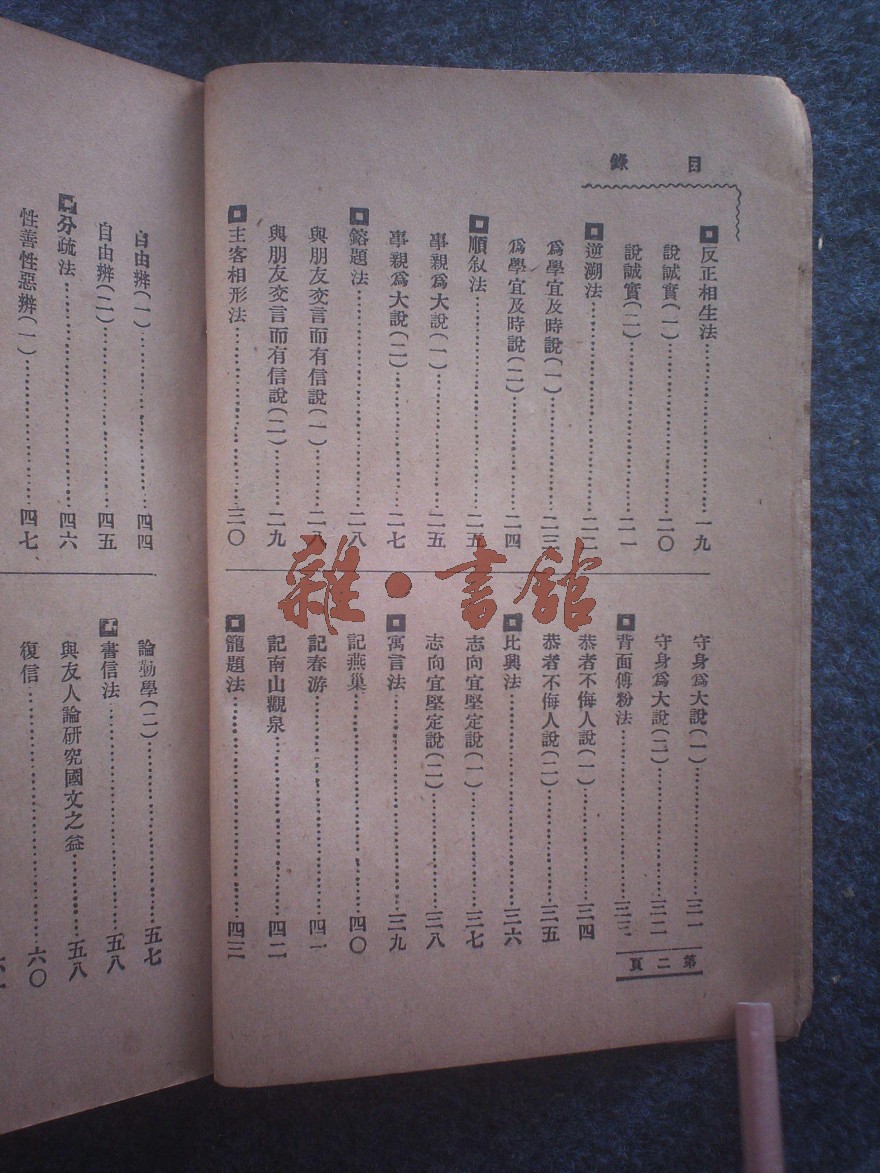 目錄
反正相生法……一九
說誠實(一)……二〇
說誠實(二)……二一
逆溯法……二二
爲學宜及時說(一)……二三
爲學宜及時說(二)……二四
順敘法……二五
事親爲大說(一)……二五
事親爲大說(二)……二七
鎔題法……二八
與朋友交言而有信說(一)……二八
與朋友交言而有信說(二)……二九
主客相形法……三〇
守身爲大說(一)……三一
守身爲大說(二)……三二
背面傅粉法……三三
恭者不侮人說(一)……三四
恭者不侮人說(二)……三五
比興法……三六
志向宜堅定說(一)……三七
志向宜堅定說(二)……三八
寓言法……三九
記燕巢……四〇
記春游……四一
記南山觀泉……四二
籠題法……四三
第二頁
自由辨(一)……四四
自由辨(二)……四五
分疏法……四六
性善性惡辨(一)……四七
論勤學(二)……五七
書信法……五八
與友人論研究國文之益……五八
復信……六〇
雜·書館